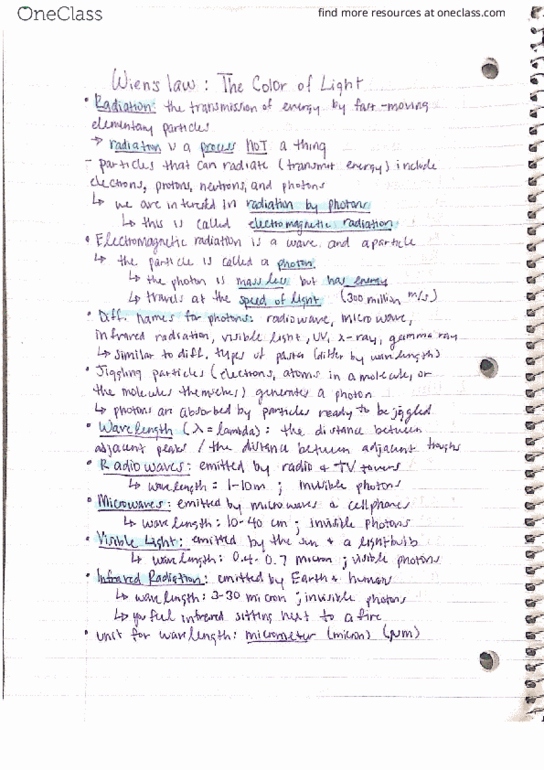 OneClass
find more resources at oneclass.com
Wien's law : The Color of Light
• Radiation: the transmission of energy by fast-moving
elementary particles
→ radiation is a process NOT a thing
- particles that can radiate (transmit energy) include
electrons, protons, neutrons, and photons
↳ we are interested in radiation by photons
↳ this is called electromagnetic radiation
• Electromagnetic radiation is a wave and a particle
↳ the particle is called a photon
↳ the photon is massless but has energy
↳ travels at the speed of light (300 million m/s)
• Diff. names for photons: radiowave, microwave,
infrared radiation, visible light, UV, x-ray, gamma ray
↳ similar to diff. types of pasta (differ by wavelength)
• Jiggling particles (electrons, atoms in a molecule, or
the molecules themselves) generates a photon
↳ photons are absorbed by particles ready to be jiggled
• Wavelength (λ = lambda): the distance between
adjacent peaks / the distance between adjacent troughs
• Radiowaves: emitted by radio & TV towers
↳ wavelength = 1-10m ; invisible photons
• Microwaves: emitted by microwaves & cellphones
↳ wavelength: 10-40 cm ; invisible photons
• Visible Light: emitted by the sun & a lightbulb
↳ wavelength: 0.4-0.7 micron ; visible photons
• Infrared Radiation: emitted by Earth & humans
↳ wavelength: 3-30 micron ; invisible photons
↳ you feel infrared sitting next to a fire
• unit for wavelength: micrometer (micron) (μm)